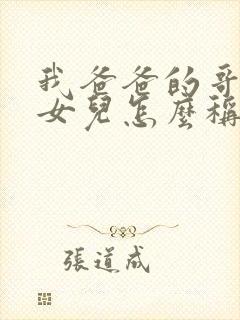 我爸爸的哥
女兒怎麼稱
張道成